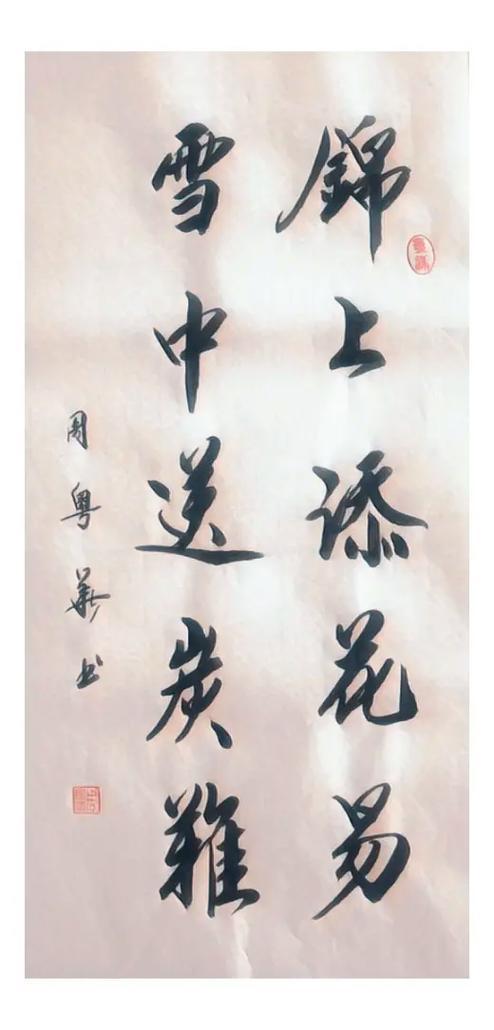 錦上添花易
雪中送炭難
周粤華书